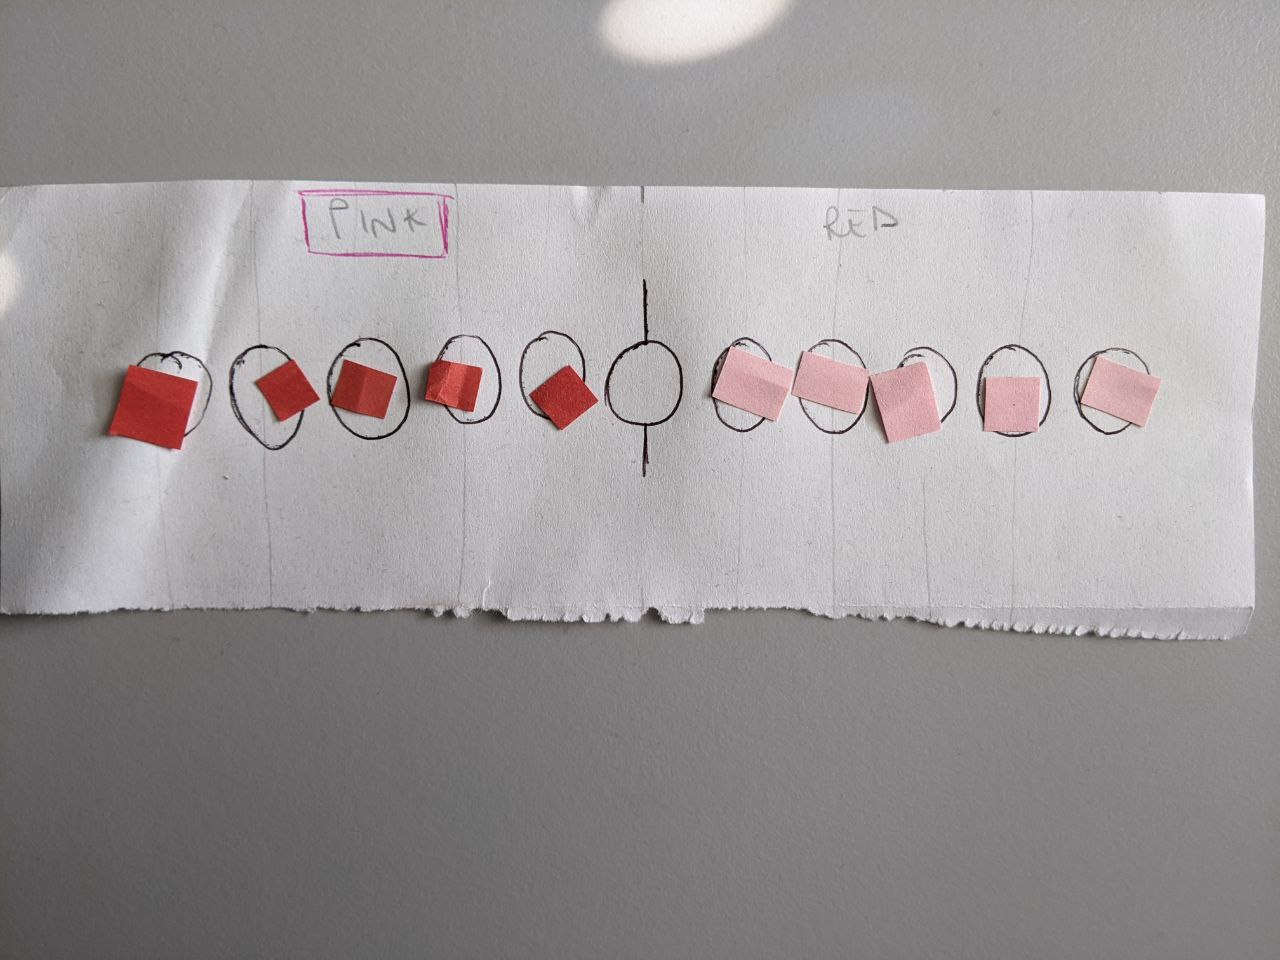 PINK
RED